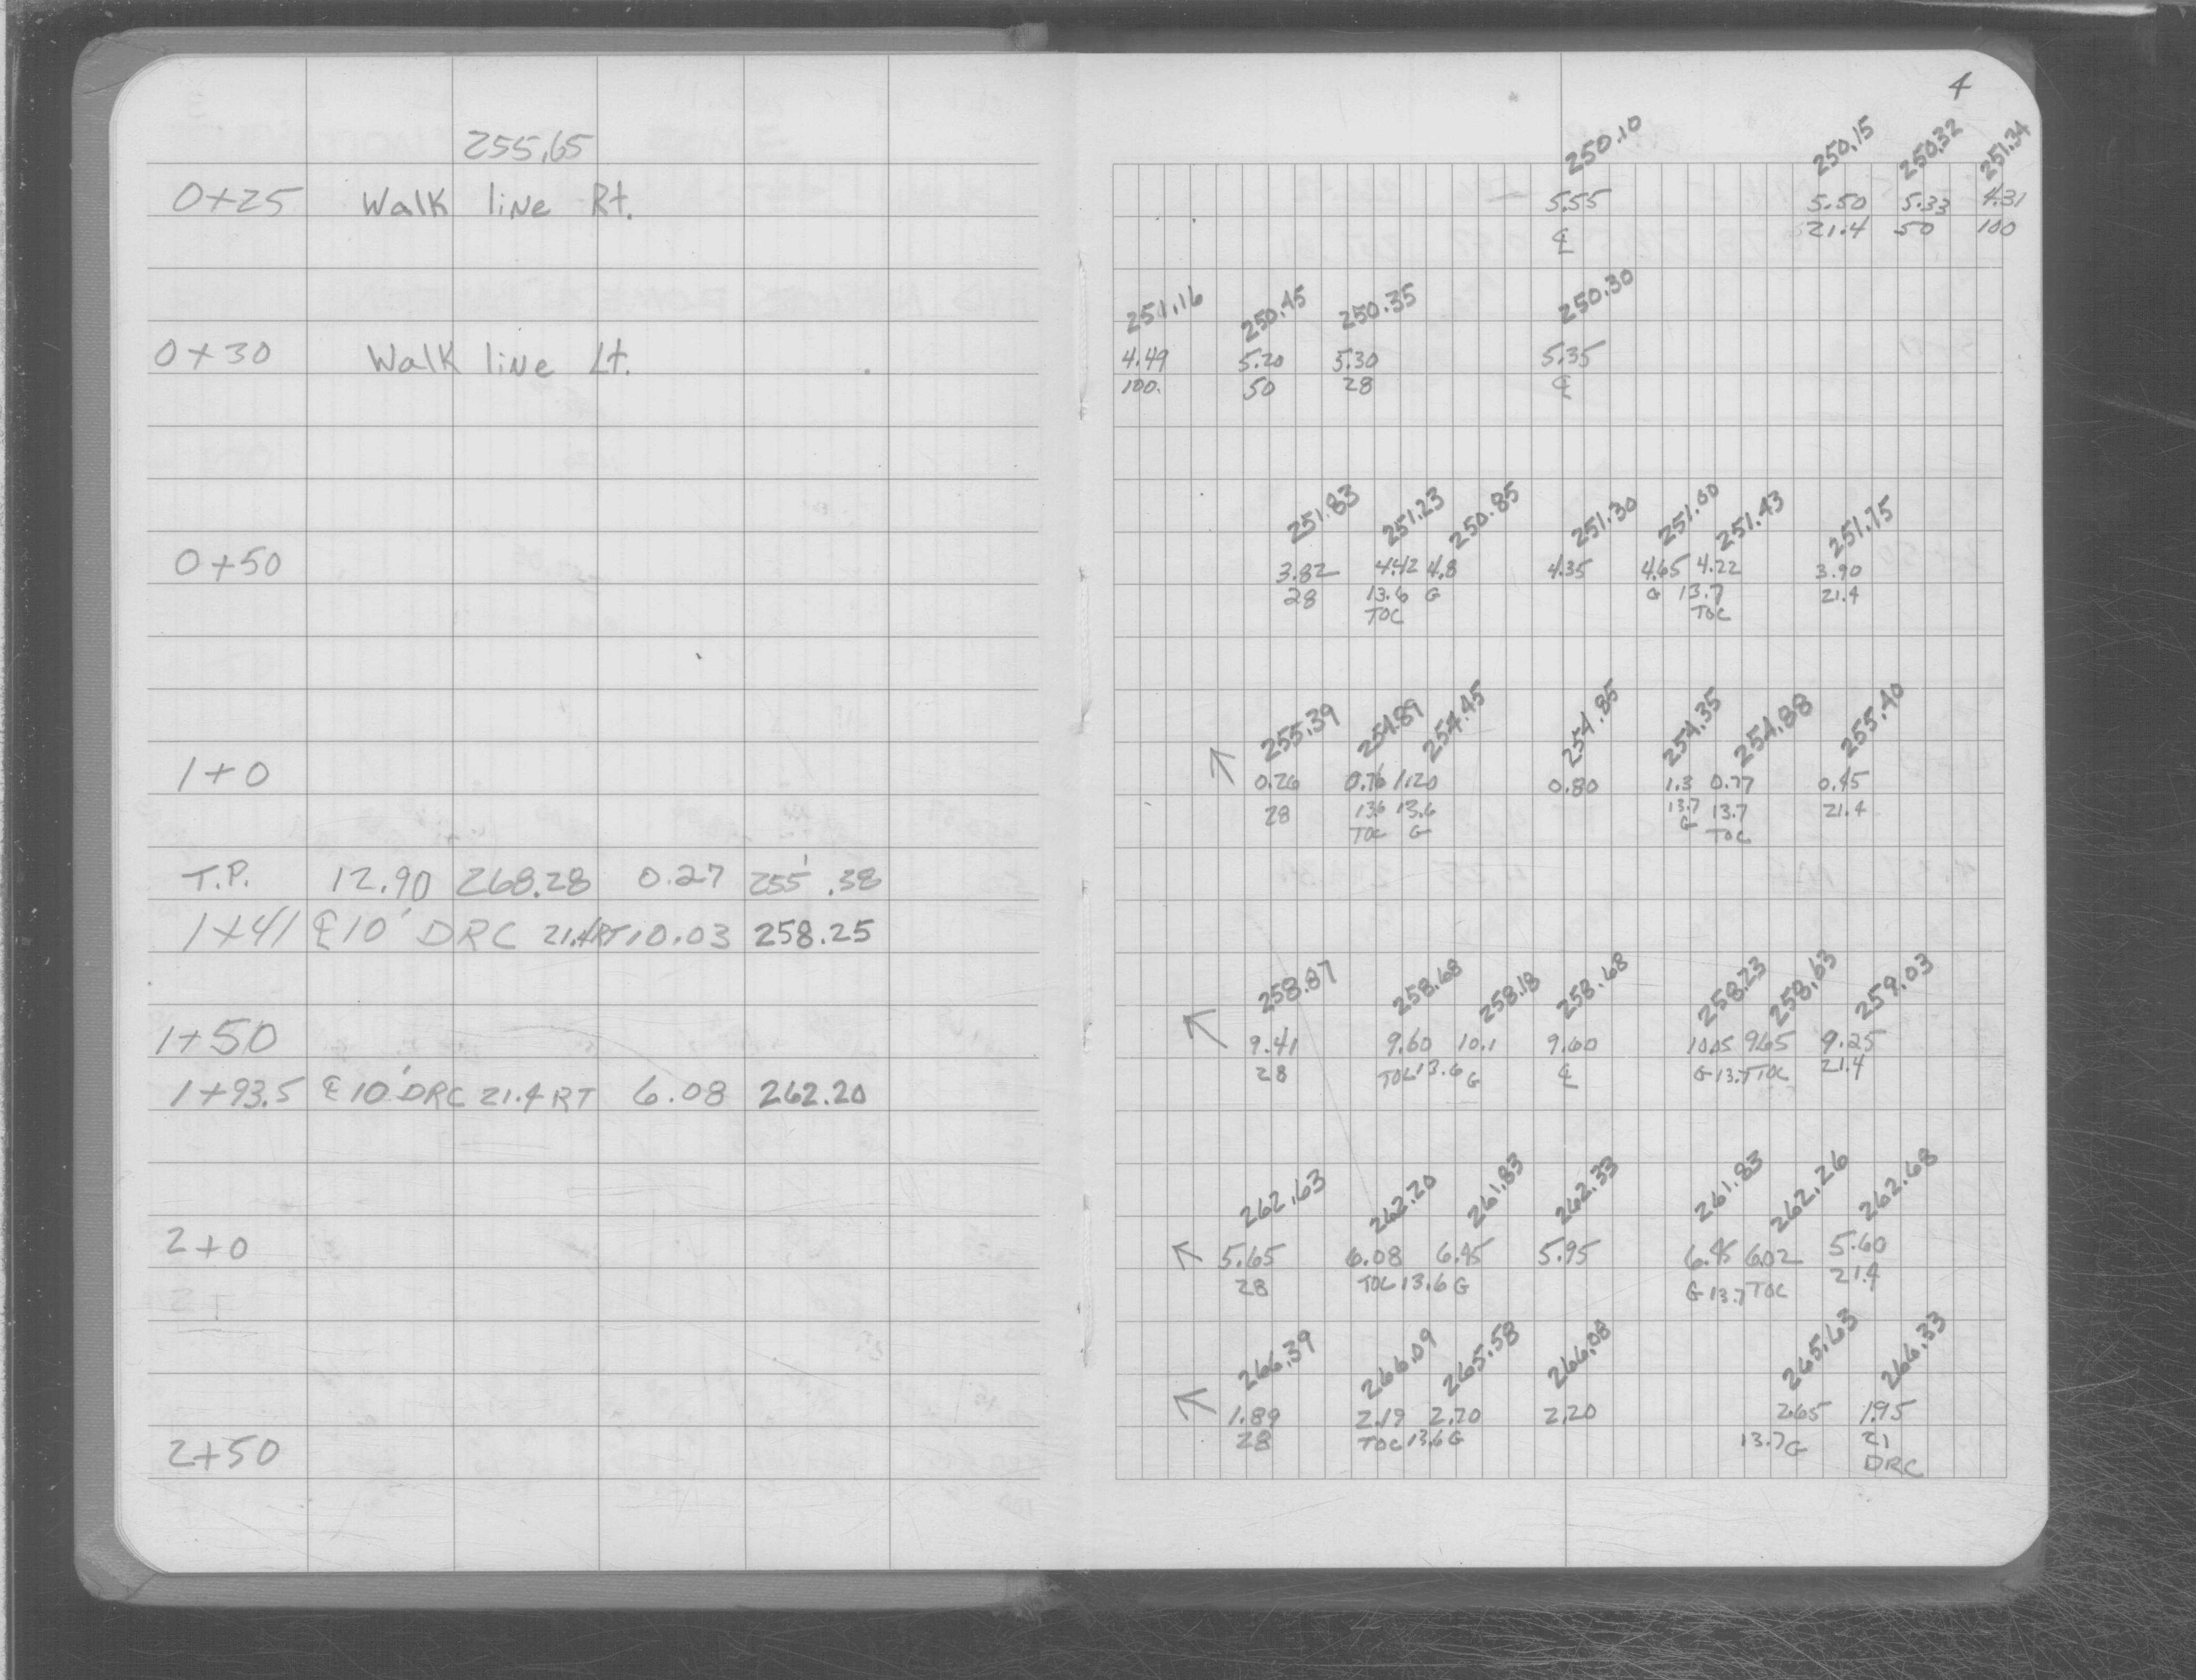 4
255.65
250.10 250.15 250.32 251.34
0+25 Walk line Rt. 5.55 5.50 5.33 4.31
℄ 21.4 50 100
251.16 250.45 250.35 250.30
0+30 Walk line Lt. 4.49 5.20 5.30 5.35
100. 50 28 ℄
251.83 251.23 250.85 251.30 251.00 251.43 251.75
0+50 3.82 4.42 4.8 4.35 4.65 4.22 3.90
28 13.6 G G 13.7 21.4
TOC TOC
255.39 254.89 254.45 254.85 254.35 254.88 255.40
1+0 0.26 0.76 1.20 0.80 1.3 0.77 0.45
28 13.6 13.6 13.7 13.7 21.4
TOC G G TOC
T.P. 12.90 268.28 0.27 255.38
1+41 ℄ 10' DRC 21.4 RT 10.03 258.25
258.87 258.68 258.18 258.68 258.23 258.63 259.03
1+50 9.41 9.60 10.1 9.60 10.05 9.65 9.25
28 TOC 13.6 G ℄ G 13.7 TOC 21.4
1+93.5 ℄ 10' DRC 21.4 RT 6.08 262.20
262.63 262.20 261.83 262.33 261.83 262.26 262.68
2+0 5.65 6.08 6.45 5.95 6.45 6.02 5.60
28 TOC 13.6 G G 13.7 TOC 21.4
266.39 266.09 265.58 266.08 265.63 266.33
1.89 2.19 2.70 2.20 2.65 1.95
2+50 28 TOC 13.6 G 13.7 G 21
DRC